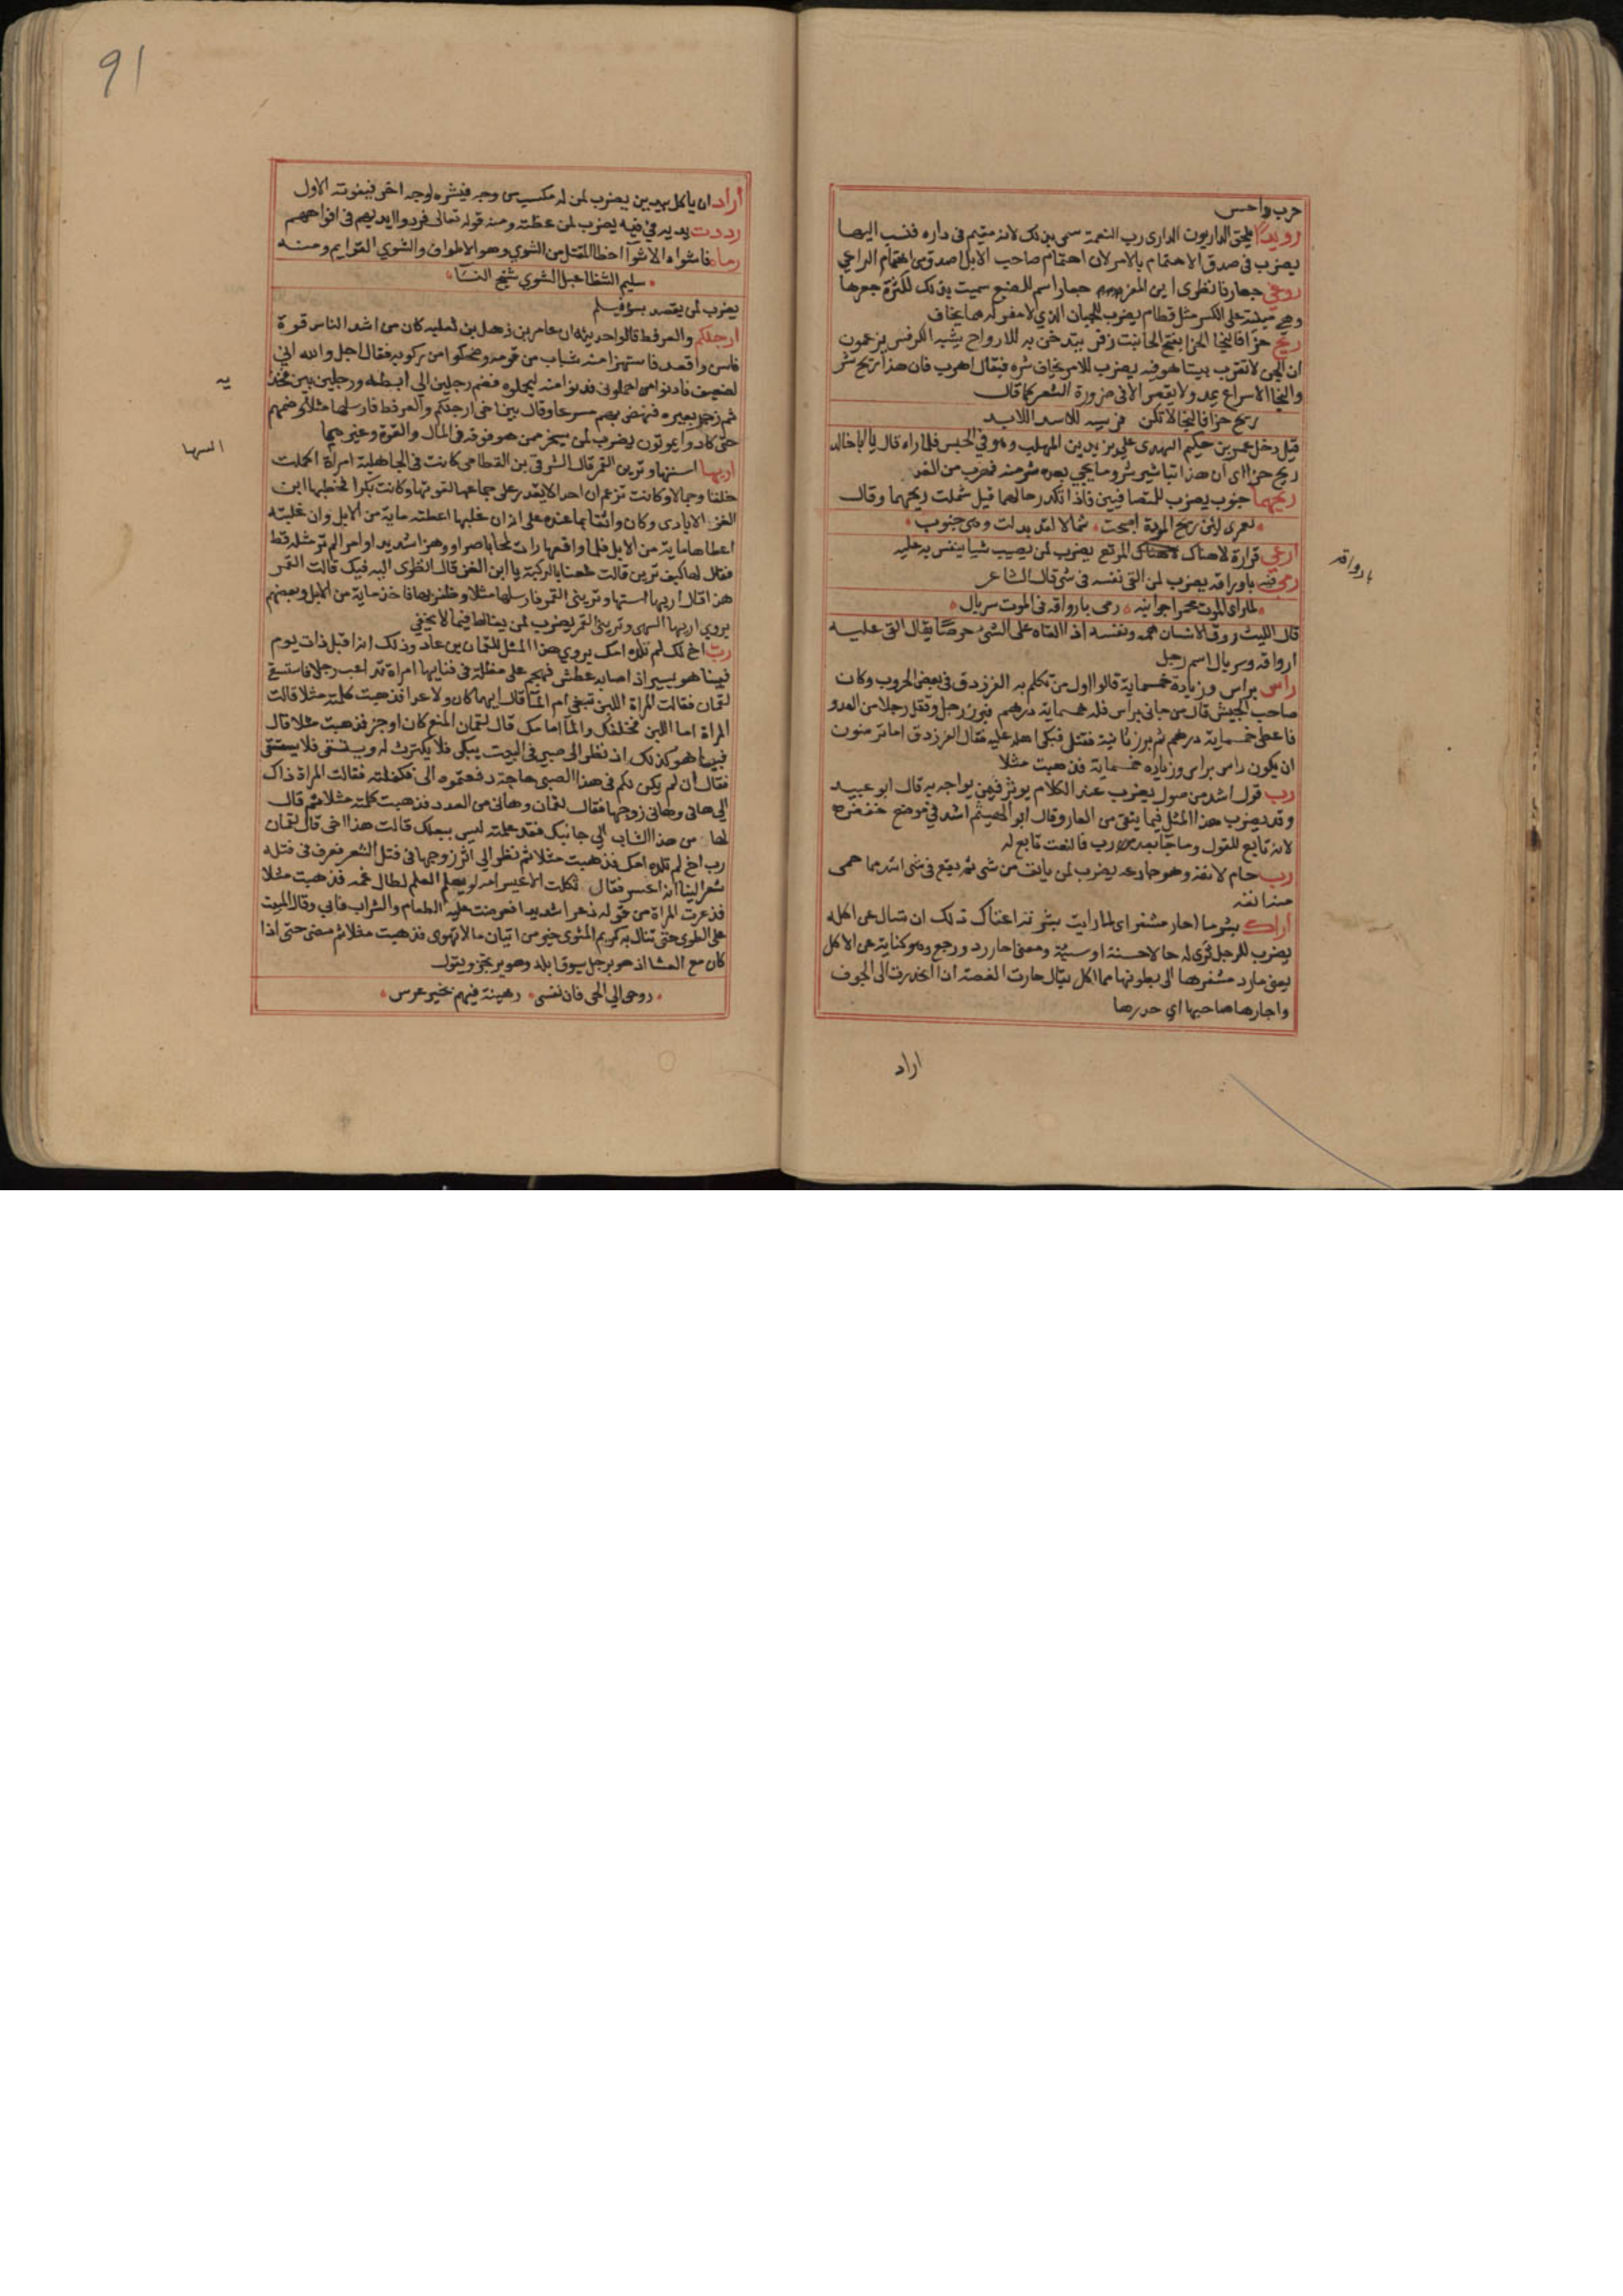 حرب داحس
رويدا يلحق الداريون الداري رب النعمة سمي بذلك لانه مقيم في داره فنسب اليها
يضرب في صدق الاهتمام بالامر لان اهتمام صاحب الابل اصدق من اهتمام الراعي
روغي جعار فانظري اين المفر جعار اسم للضبع سميت بذلك لكثرة جعرها
وهي مبنية على الكسر مثل قطام يضرب للجبان الذي لا مفر له مما يخاف
ريح حزا فالنجا الحزا بفتح الحا نبت زفر يتدخن به للارواح يشبه الكرفس يزعمون
ان الجن لا تقرب بيتا هو فيه يضرب للامر يخاف شره فيقال اهرب فان هذا ريح شر
والنجا الاسراع يمد ولا يقصر الا في ضرورة الشعر كما قال
ريح حزا فالنجا لا تكن فريسه للاسد اللابد
قيل دخل عمر بن حكيم النهدي على يزيد بن المهلب وهو في الحبس فلما راه قال يا ابا خالد
ريح حزا اي ان هذا تباشير شر وما يجي بعده شر منه فهرب من الغد
ريحهما جنوب يضرب للمتصافيين فاذا تكدر حالهما قيل شملت ريحهما وقال
لعمري لئن ريح المودة اصبحت شمالا لقد بدلت وهي جنوب
ارعي فزارة لا هناك المرتع يضرب لمن يصيب شيا ينفس به عليه
رمي فيه باوراقه يضرب لمن القى نفسه في شي قال الشاعر
لما راى الموت محمرا جوانبه رمى بارواقه في الموت سربال
قال الليث روق الانسان همه ونفسه اذا القاه على الشي حرصا يقال القى عليه
ارواقه وسربال اسم رجل
راس براس وزيادة خمسماية قالوا اول من تكلم به الفرزدق في بعض الحروب وكان
صاحب الجيش قال من جاني براس فله خمسماية درهم فبرز رجل وقتل رجلا من العدو
فاعطى خمسماية درهم ثم برز ثانية فقتل فبكى اهله عليه فقال الفرزدق اما ترضون
ان يكون راس براس وزيادة خمسماية فذهبت مثلا
رب قول اشد من صول يضرب عند الكلام يوثر فيمن يواجه به قال ابو عبيد
وقد يضرب هذا المثل فيما يتقى من العار وقال ابو الهيثم اشد في موضع خفض
لانه تابع للقول وما جا بعد رب فالنعت تابع له
رب حام لانفه وهو جادعه يضرب لمن يانف من شي ثم يقع في شي اشد مما حمى
منه انفه
اراك بشر ما احار مشفر اي لما رايت بشرته اغناك ذلك ان تسال عن اكله
يضرب للرجل ترى له حالا حسنة او سيئة ومعنى احار رد ورجع وهو كناية عن الاكل
يعني ما رد مشفرها الى بطونها مما اكل يقال حارت الغصة اذا انحدرت الى الجوف
واحارها صاحبها اي حدرها
اراد
بارواقه
91
اراد ان ياكل بيدين يضرب لمن له مكسب من وجه فيشره لوجه اخر فيفوته الاول
رددت يديه في فيه يضرب لمن غظته ومنه قوله تعالى فردوا ايديهم في افواههم
رماه فاشواه الاشوا اخطا المقتل من الشوي وهو الاطراف والشوي القوايم ومنه
سليم الشظا عبل الشوي شنج النسا
يضرب لمن يقصد بسو فيسلم
ارجلكم والعرفط قالوا حديثه ان عامر بن ذهل بن ثعلبه كان من اشد الناس قوة
فاسن واقعد فاستهزا منه شباب من قومه وضحكوا من ركوبه فقال اجل والله اني
لضعيف فادنوا مني احملوني فدنوا منه ليحملوه فضم رجلين الى ابطه ورجلين بين فخذيه
ثم زجر بعيره فنهض بهم مسرعا وقال بني اخي ارجلكم والعرفط فارسلها مثلا وضمهم
حتى كادوا يموتون يضرب لمن يسخر ممن هو فوقه في المال والقوة وغيرهما
اريها استها وتريني القمر قال الشرقي بن القطامي كانت في الجاهلية امراة اكملت
خلقا وجمالا وكانت تزعم ان احدا لا يقدر على جماعها لقوتها وكانت بكرا فخطبها ابن
الغز الايادي وكان واثقا بما عنده على انه ان غلبها اعطته ماية من الابل وان غلبته
اعطاها ماية من الابل فلما واقعها رات لمحا باصرا ورهزا شديدا وامرا لم تر مثله قط
فقال لها كيف ترين قالت طعنا بالركبة يا ابن الغز قال انظري اليه فيك قالت القمر
هذا قال اريها استها وتريني القمر فارسلها مثلا وظفر بها فاخذ ماية من الابل وبعضهم
يروي اريها السهى وتريني القمر يضرب لمن يغالط فيما لا يخفى
رب اخ لك لم تلده امك يروي هذا المثل للقمان بن عاد وذلك انه اقبل ذات يوم
فبينا هو يسير اذ اصابه عطش فهجم على مظلة في فنايها امراة تداعب رجلا فاستسقى
لقمان فقالت المراة اللبن تبغي ام الما قال ايهما كان ولا عدا فذهبت كلمته مثلا قالت
المراة اما اللبن فخلفك والما امامك قال لقمان المنع كان اوجز فذهبت مثلا قال
فبينا هو كذلك اذ نظر الى صبي في البيت يبكي فلا يكترث له ويستسقي فلا يستقى
فقال ان لم يكن لكم في هذا الصبي حاجة دفعتموه الي فكفلته فقالت المراة ذاك
الى هاني وهاني زوجها فقال لقمان وهاني من العدد فذهبت كلمته مثلا ثم قال
لها من هذا الشاب الى جانبك فقد علمته ليس ببعلك قالت هذا اخي قال لقمان
رب اخ لم تلده امك فذهبت مثلا ثم نظر الى اثر زوجها في فتل الشعر فعرف في فتله
شعر البنا انه اعسر فقال ثكلت الاعيسر امه لو يعلم العلم لطال غمه فذهبت مثلا
فذعرت المراة من قوله ذعرا شديدا فعرضت عليه الطعام والشراب فابي وقال المبيت
على الطوى حتى تنال به كريم المثوى خير من اتيان ما لا تهوى فذهبت مثلا ثم مضى حتى اذا
كان مع العشا اذ هو برجل يسوق ابله وهو يرتجز ويقول
روحي الى الحي فان نفسي رهينة فيهم بخير عرس
يه
السها